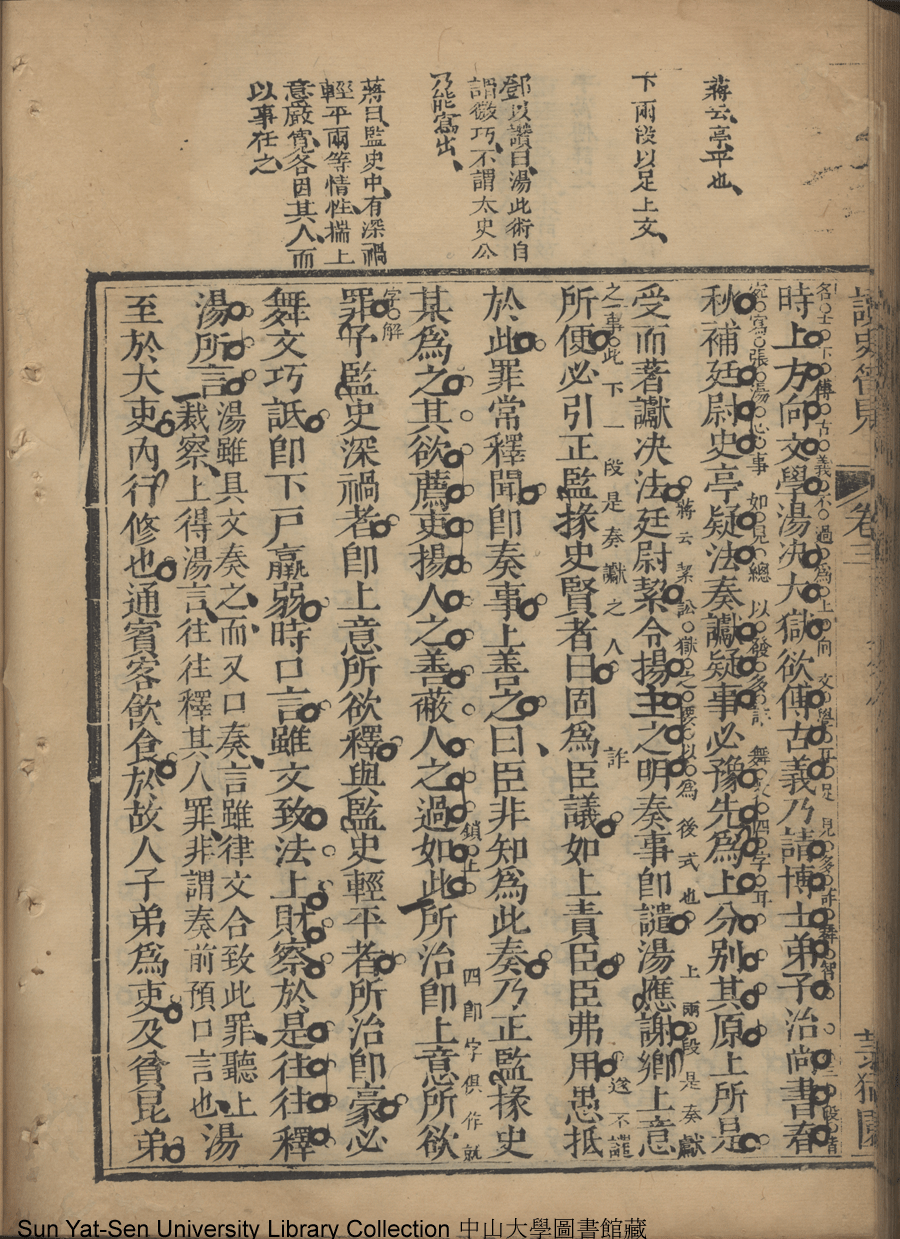 蔣云亭平也
下兩段以足上文
鄧以讚曰湯此術自
謂微巧不謂太史公
乃能寫出
蔣曰監史中有深禍
輕平兩等情性揣上
意嚴寬各因其人而
以事任之
讀史管見 卷三
時上方向文學湯决大獄欲傅古義乃請博士弟子治尚書春
秋補廷尉史亭疑法奏讞疑事必豫先為上分别其原上所是
受而著讞决法廷尉絜令揚主之明奏事卽譴湯應謝鄉上意
蔣云絜訟獄之要以為後式也 上兩段是奏讞
之事此下一段是奏讞之人 詐 遂不讙
所便必引正監掾史賢者曰固為臣議如上責臣臣弗用愚抵
於此罪常釋聞卽奏事上善之曰臣非知為此奏乃正監掾史
某為之其欲薦吏揚人之善蔽人之過如此所治卽上意所欲
鎖上 四卽字俱作就
字解
罪予監史深禍者卽上意所欲釋與監史輕平者所治卽豪必
舞文巧詆卽下戶羸弱時口言雖文致法上財察於是往往釋
湯所言
湯雖具文奏之而又口奏言雖律文合致此罪聽上
裁察上得湯言往往釋其人罪非謂奏前預口言也
湯
至於大吏內行修也通賓客飲食於故人子弟為吏及貧昆弟
Sun Yat-Sen University Library Collection 中山大學圖書館藏